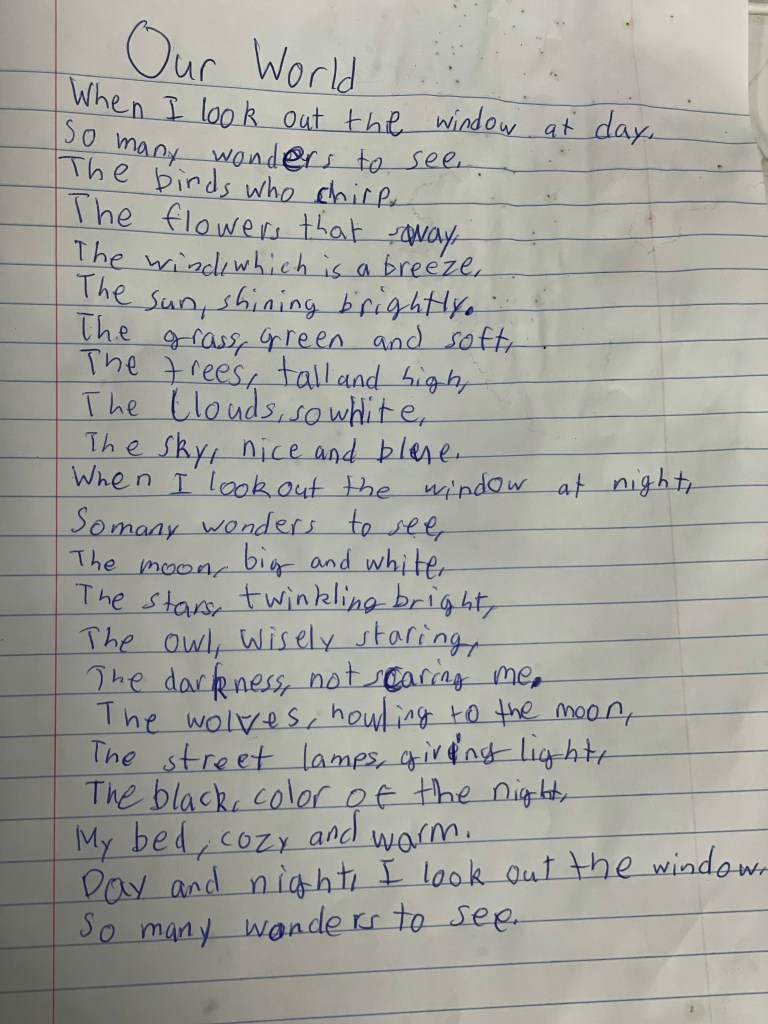 Our World
When I look out the window at day,
So many wonders to see.
The birds who chirp,
The flowers that sway,
The wind, which is a breeze,
The sun, shining brightly.
The grass, green and soft,
The trees, tall and high,
The Clouds, so white,
The sky, nice and blue.
When I look out the window at night,
So many wonders to see,
The moon, big and white,
The stars, twinkling bright,
The owl, Wisely staring,
The darkness, not scaring me.
The wolves, howling to the moon,
The street lamps, giving light,
The black, color of the night,
My bed, cozy and warm.
Day and night, I look out the window,
So many wonders to see.